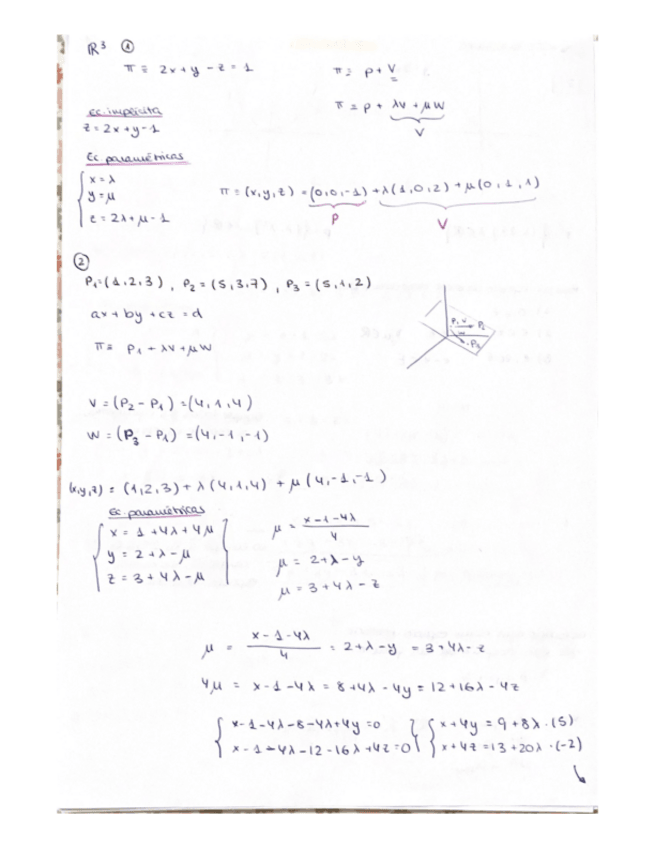 ℝ³ ①
π ≡ 2x + y - z = 1
π ≡ p + V
π ≡ p + λv + μw
V
Ec. implícita
z = 2x + y - 1
Ec paramétricas
x = λ
y = μ
z = 2λ + μ - 1
π ≡ (x, y, z) = (0, 0, -1) + λ(1, 0, 2) + μ(0, 1, 1)
P
V
②
P₁ = (1, 2, 3), P₂ = (5, 3, 7), P₃ = (5, 1, 2)
ax + by + cz = d
π ≡ P₁ + λv + μw
P₁ v P₂
w P₃
v = (P₂ - P₁) = (4, 1, 4)
w = (P₃ - P₁) = (4, -1, -1)
(x, y, z) = (1, 2, 3) + λ(4, 1, 4) + μ(4, -1, -1)
Ec. paramétricas
x = 1 + 4λ + 4μ
y = 2 + λ - μ
z = 3 + 4λ - μ
μ = (x - 1 - 4λ)/4
μ = 2 + λ - y
μ = 3 + 4λ - z
μ = (x - 1 - 4λ)/4 = 2 + λ - y = 3 + 4λ - z
4μ = x - 1 - 4λ = 8 + 4λ - 4y = 12 + 16λ - 4z
x - 1 - 4λ - 8 - 4λ + 4y = 0 x + 4y = 9 + 8λ · (5)
x - 1 - 4λ - 12 - 16λ + 4z = 0 x + 4z = 13 + 20λ · (-2)